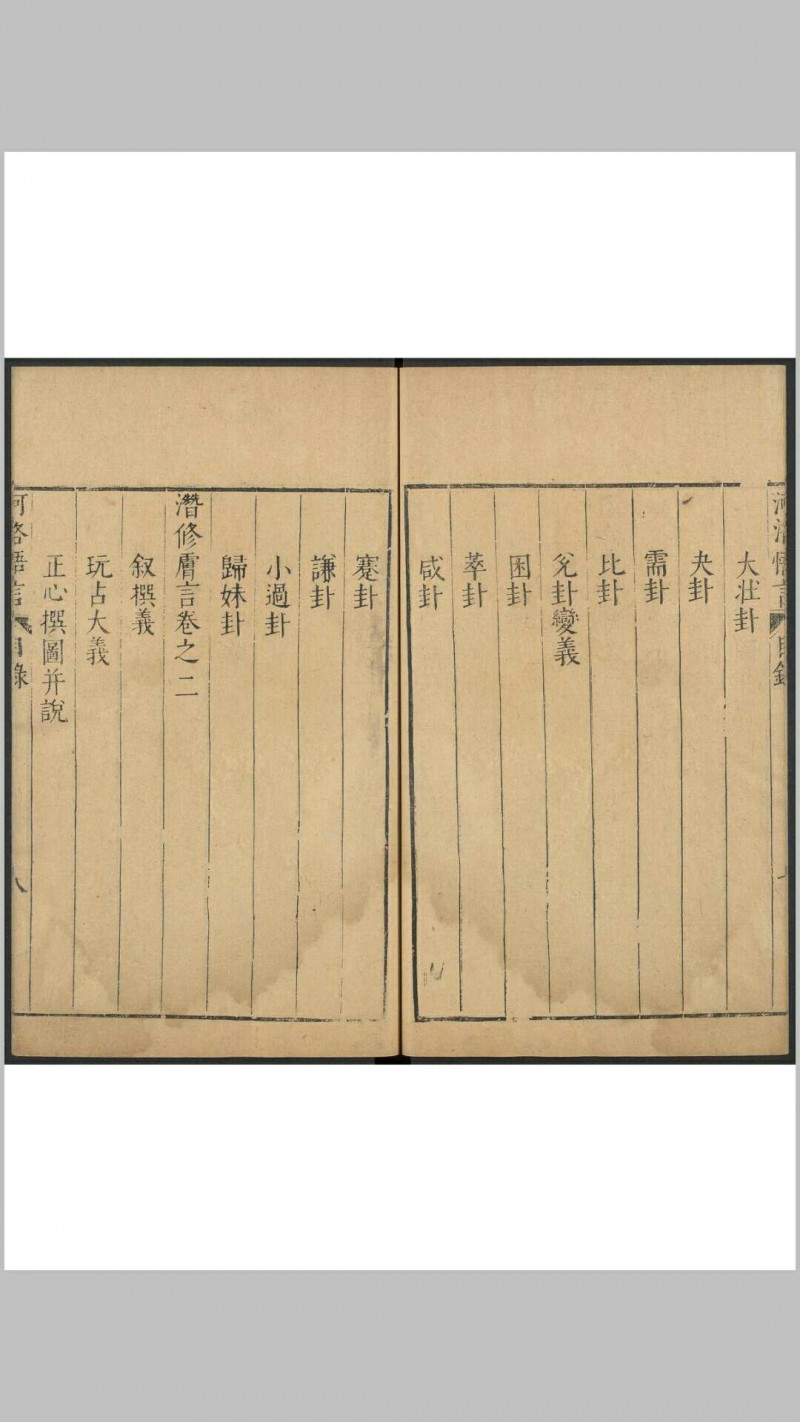 河洛悟言 目錄
大壯卦
夬卦
需卦
比卦
兌卦變義
困卦
萃卦
咸卦
蹇卦
謙卦
小過卦
歸妹卦
潛修膚言卷之二
叙撰義
玩占大義
正心撰圖并說
河洛悟言 目錄 八